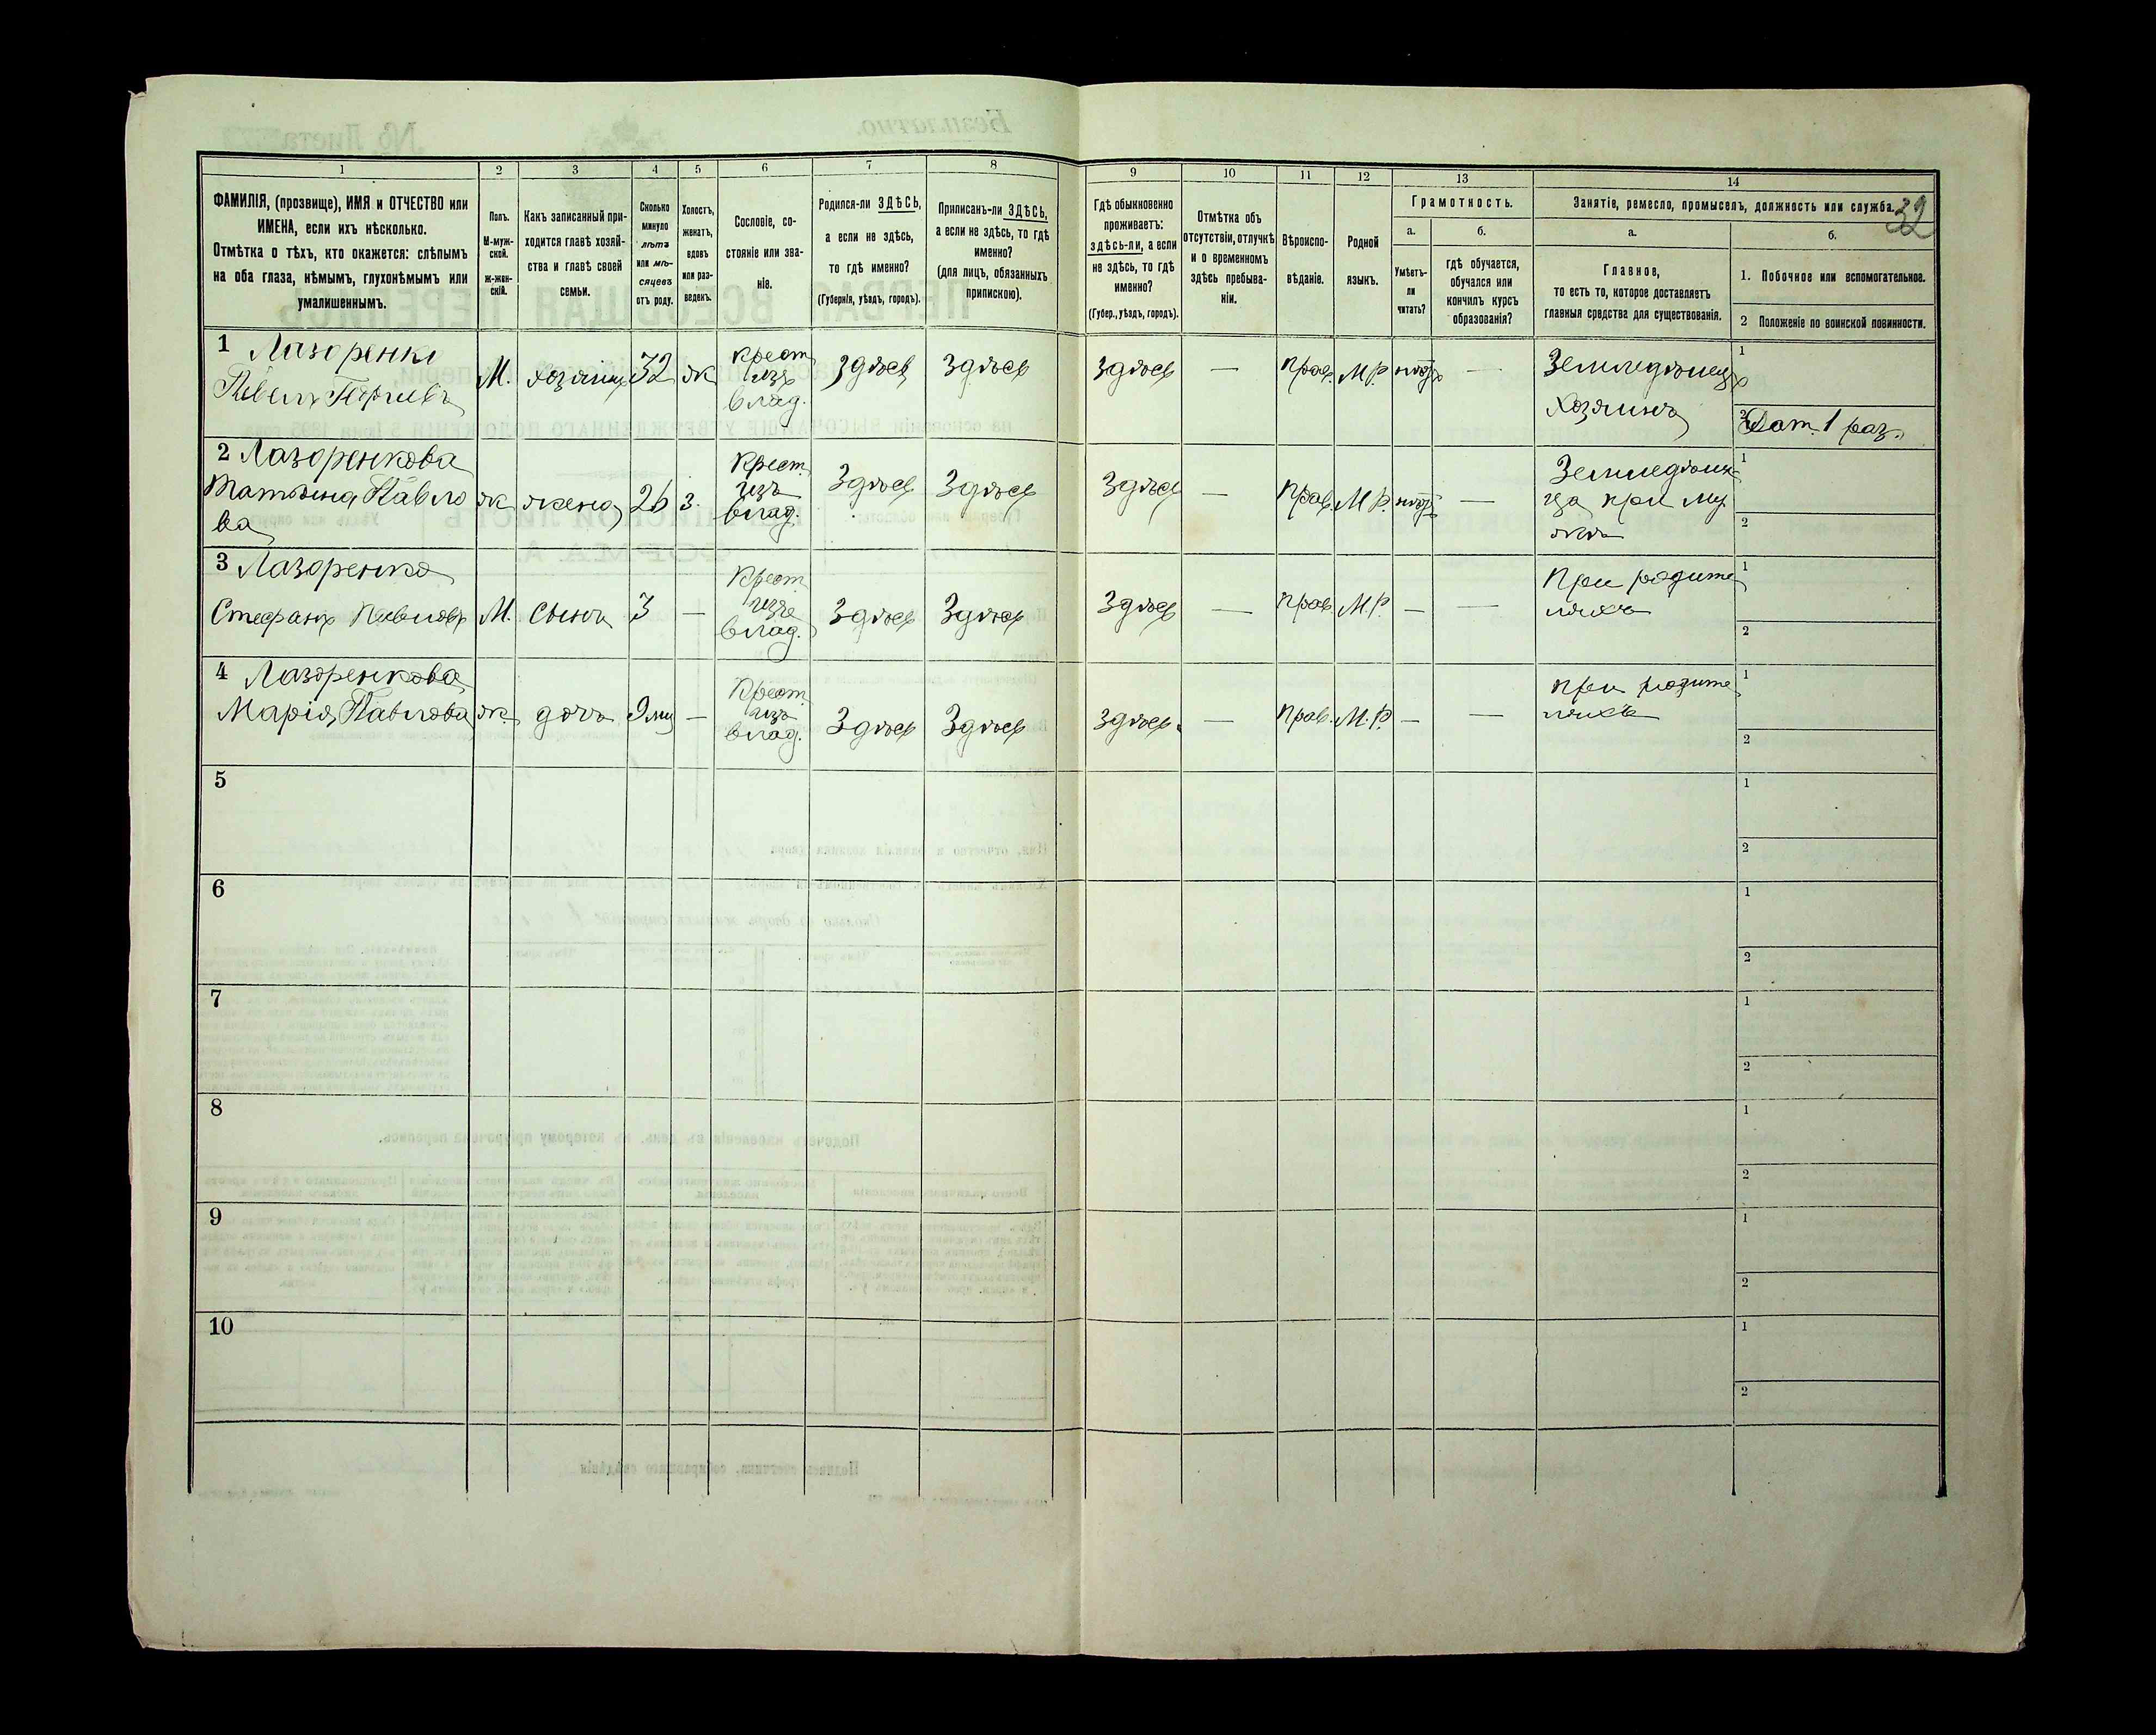 1 2 3 4 5 6 7 8 9 10 11 12 13 14
32
ФАМИЛІЯ, (прозвище), ИМЯ и ОТЧЕСТВО или
ИМЕНА, если ихъ нѣсколько.
Отмѣтка о тѣхъ, кто окажется: слѣпымъ
на оба глаза, нѣмымъ, глухонѣмымъ или
умалишеннымъ.
Полъ.
М-муж-
ской.
Ж-жен-
скій.
Какъ записанный при-
ходится главѣ хозяй-
ства и главѣ своей
семьи.
Сколько
минуло
лѣтъ
или мѣ-
сяцевъ
отъ роду.
Холостъ,
женатъ,
вдовъ
или раз-
веденъ.
Сословіе, со-
стояніе или зва-
ніе.
Родился-ли ЗДѢСЬ,
а если не здѣсь,
то гдѣ именно?
(Губернія, уѣздъ, городъ).
Приписанъ-ли ЗДѢСЬ,
а если не здѣсь, то гдѣ
именно?
(для лицъ, обязанныхъ
припискою).
Гдѣ обыкновенно
проживаетъ:
здѣсь-ли, а если
не здѣсь, то гдѣ
именно?
(Губер., уѣздъ, городъ).
Отмѣтка объ
отсутствіи, отлучкѣ
и о временномъ
здѣсь пребыва-
ніи.
Вѣроиспо-
вѣданіе.
Родной
языкъ.
Грамотность.
а.
Умѣетъ-
ли
читать?
б.
гдѣ обучается,
обучался или
кончилъ курсъ
образованія?
Занятіе, ремесло, промыселъ, должность или служба.
а.
Главное,
то есть то, которое доставляетъ
главныя средства для существованія.
б.
1. Побочное или вспомогательное.
2 Положеніе по воинской повинности.
1 Лазоренко
Павелъ
М. хозяинъ 32 ж
крест.
изъ
влад.
здѣсь здѣсь здѣсь — прав. М.Р. нѣтъ —
Земледѣлецъ
хозяинъ
1
2 Рат. 1 раз.
2 Лазоренкова
Татьяна Павло
ва
ж жена 26 з.
крест.
изъ
влад.
здѣсь здѣсь здѣсь — прав. М.Р. нѣтъ —
Земледѣли
ца при му
жѣ
1
2
3 Лазоренко
Стефанъ Павловъ
М. сынъ 3 —
крест.
изъ
влад.
здѣсь здѣсь здѣсь — прав. М.Р. — —
при родите
ляхъ
1
2
4 Лазоренкова
Марія Павлова
ж дочь 9 —
крест.
изъ
влад.
здѣсь здѣсь здѣсь. — прав. М.Р. — —
при родите
ляхъ
1
2
5
1
2
6
1
2
7
1
2
8
1
2
9
1
2
10
1
2